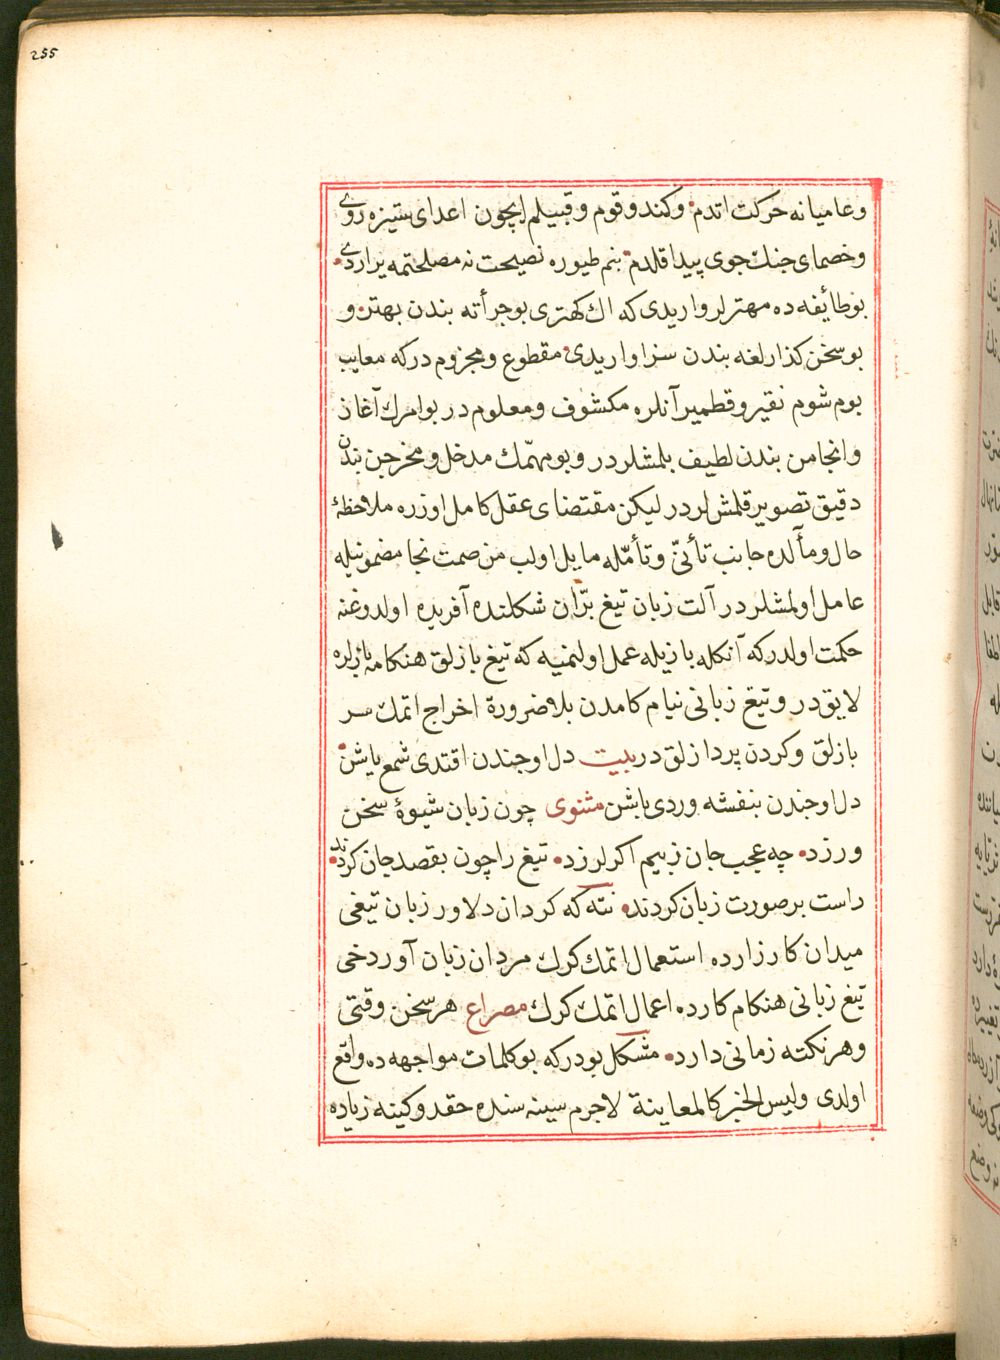 255
وعاميانه حركت اتدم وكندو قوم وقبيلم ايچون اعداى ستيزه روى
وخصماى جنك جوى پيدا قلدم بنم طيوره نصيحت نه مصلحتمه يراردى
بو طائفه ده مهترلر واريدى كه اك كهترى بو جرأته بندن بهتر و
بو سخن كذارلغه بندن سزاواريدى مقطوع ومجزوم دركه معايب
بوم شوم نقير وقطمير آنلره مكشوف ومعلوم در بو امرك آغاز
وانجامن بندن لطيف بلمشلردر وبو مهمّك مدخل ومخرجن بندن
دقيق تصوير قلمشلردر ليكن مقتضاى عقل كامل اوزره ملاحظهٔ
حال ومآلده جانب تأنّى وتأمّله مايل اولب من صمت نجا مضمونيله
عامل اولمشلردر آلت زبان تيغ برّان شكلنده آفريده اولدوغنه
حكمت اولدركه آنكله بازيله عمل اولنميه كه تيغ بازلق هنكامه بازلره
لايق در وتيغ زبانى نيام كامدن بلا ضرورة اخراج اتمك سر
بازلق وكردن پردازلق در بيت دل اوجندن اقتدى شمع ياشن
دل اوجندن بنفشه وردى باشن مثنوى چون زبان شيوهٔ سخن
ورزد چه عجب جان زبيم اكر لرزد تيغ را چون بقصد جان كردند
راست بر صورت زبان كردند نته كه كردان دلاور زبان تيغى
ميدان كارزارده استعمال اتمك كرك مردان زبان آور دخى
تيغ زبانى هنكام كارده اعمال اتمك كرك مصراع هر سخن وقتى
وهر نكته زمانى دارد مشكل بودركه بو كلمات مواجهه ده واقع
اولدى وليس الخبر كالمعاينة لاجرم سينه سنده حقد وكينه زياده